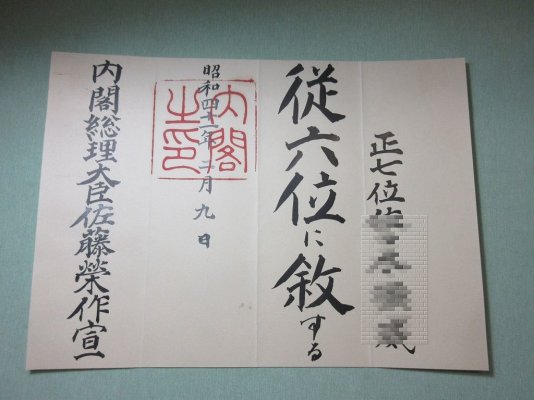 正七位
従六位に敘する
昭和四十年月九日
内閣之印
内閣総理大臣佐藤榮作宣